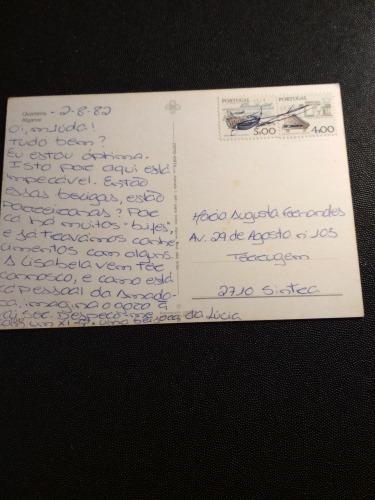 Quarteira
Algarve
- 2-8-82
Oi, miúda!
Tudo bem?
Eu estou óptima.
Isto por aqui está
impecável. Estão
essas bexigas, estão
Porreiraças? Por
cá há muitos bifes,
e já travámos conhe-
cimentos com alguns.
A Lisabela vem ter
connosco, e como está
cá pessoal da Amado-
ra, imagina o gozo q
vai ser. Despeço-me
com um xi e uma beijoca da Lúcia
PORTUGAL
5.00
PORTUGAL
4.00
Maria Augusta Fernandes
Av. 29 de Agosto nº 105
Terrugem
2710 Sintra